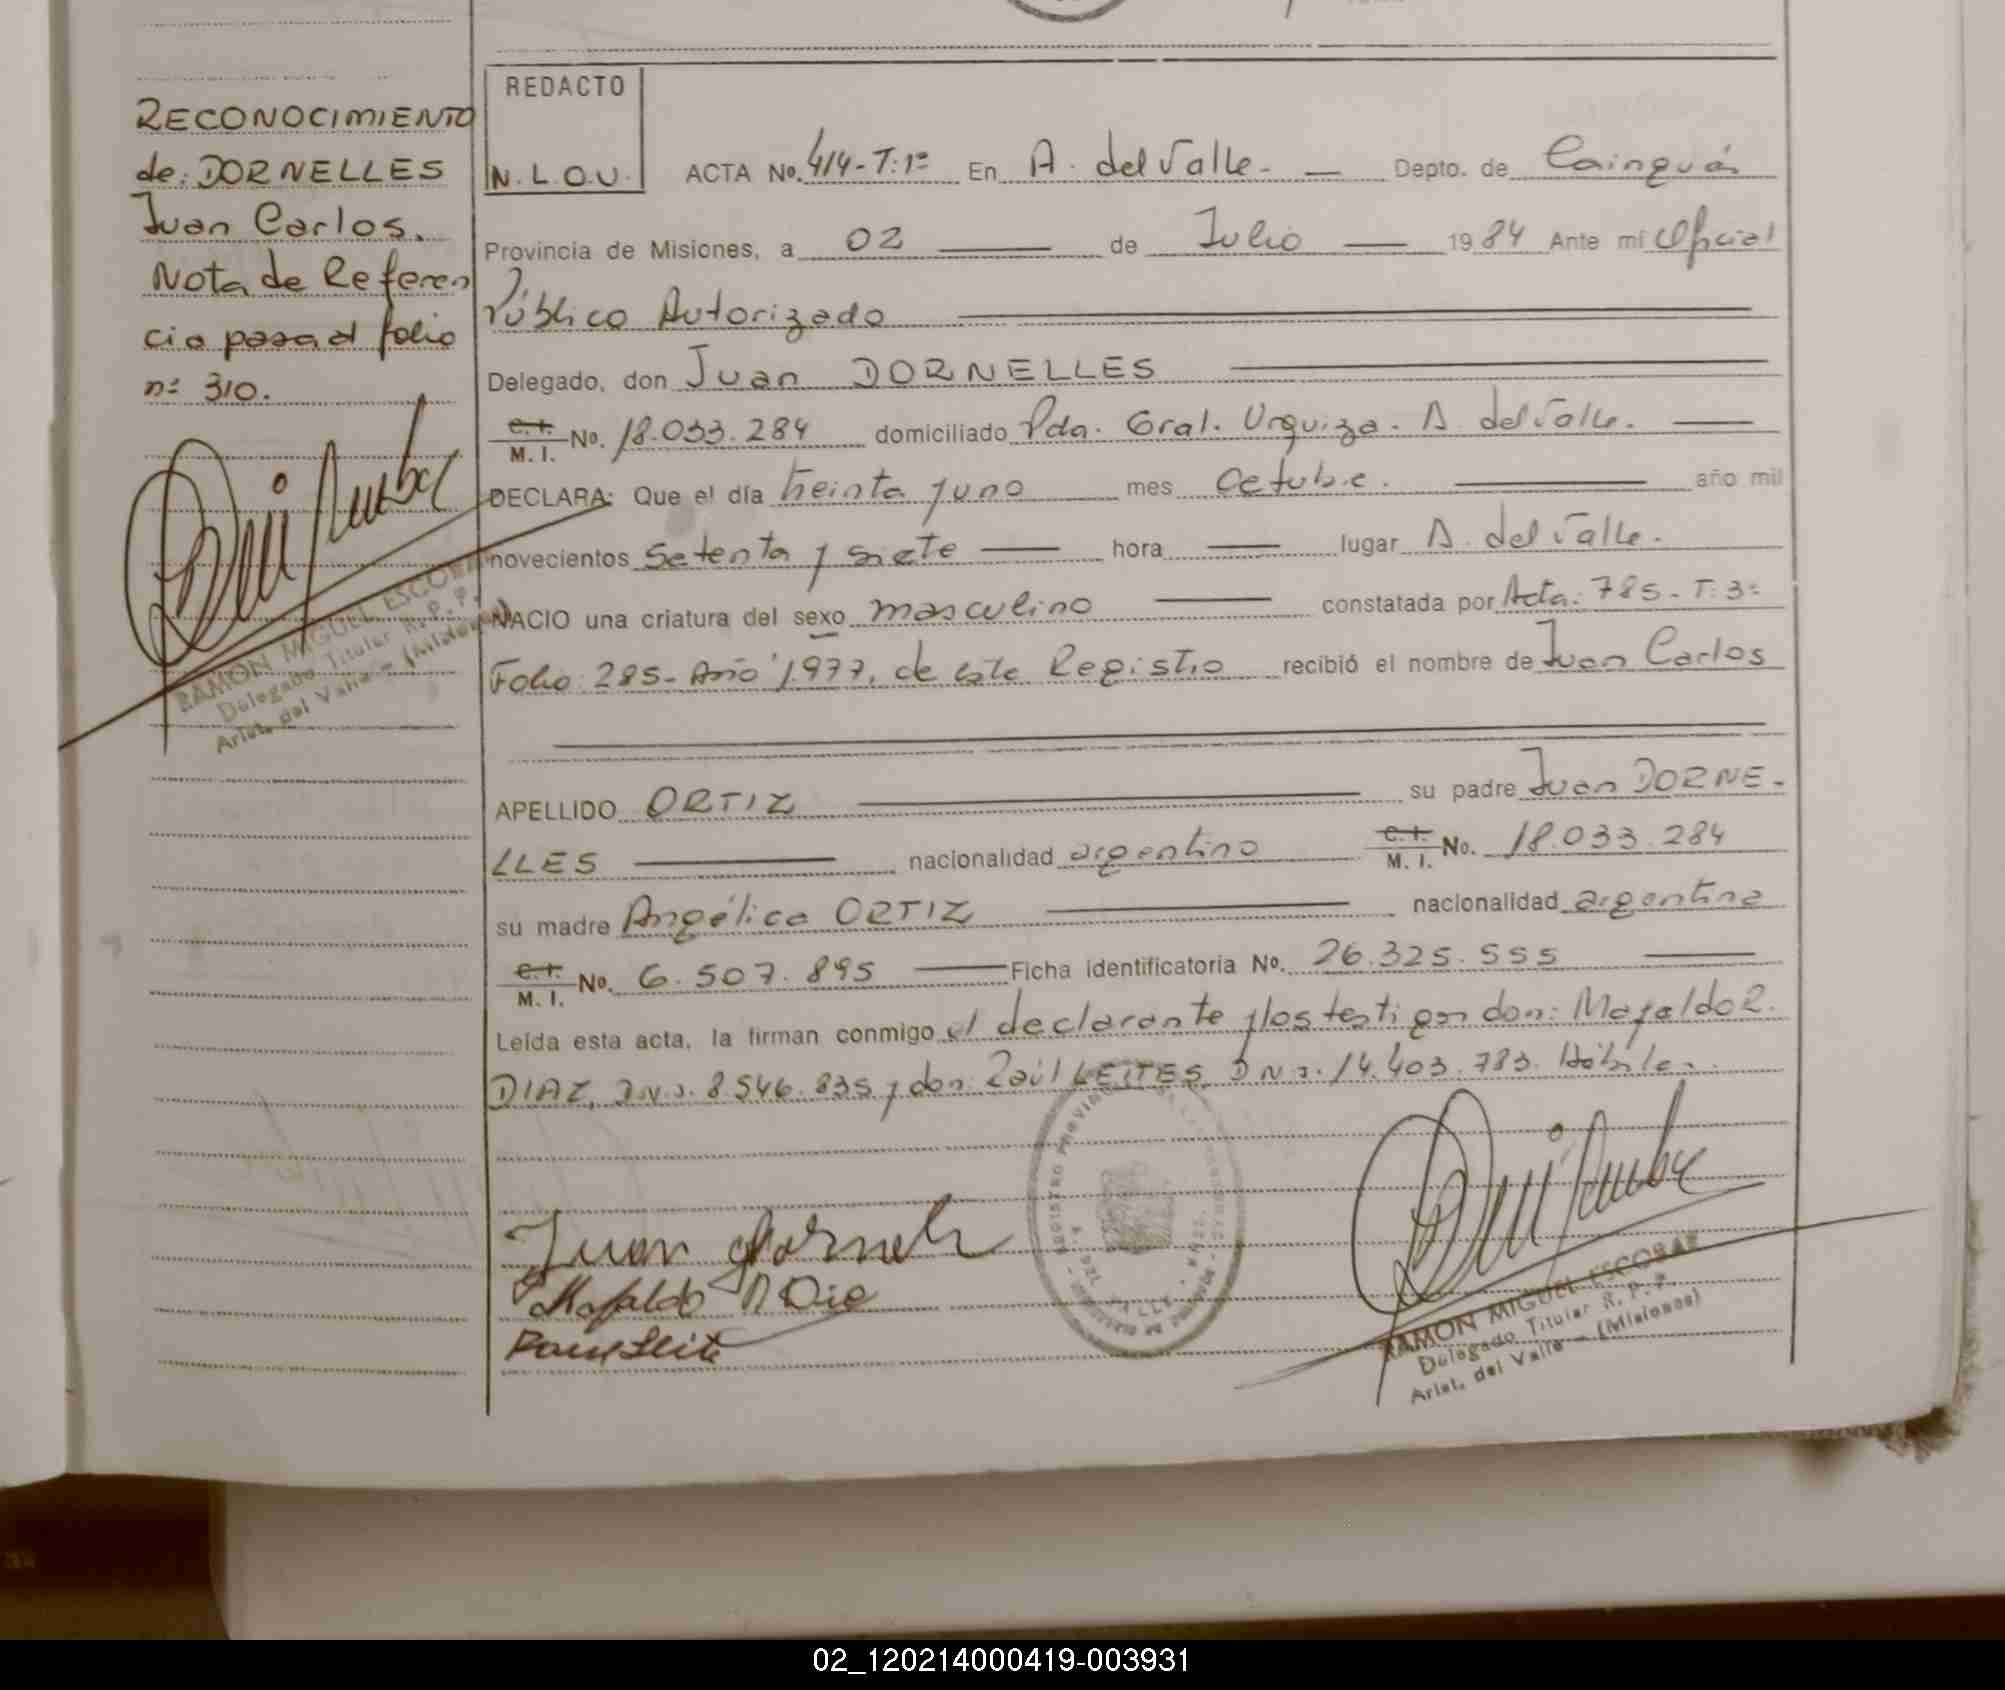 RECONOCIMIENTO
de: DORNELLES
Juan Carlos.
Nota de Referen
cia pasa al folio
nº 310.
RAMON MIGUEL ESCOBAR
Delegado Titular R. P. P.
Arist. del Valle - (Misiones)
REDACTO
N. L. O. U.
ACTA No. 414-T:1º En A. del Valle. — Depto. de Cainguás
Provincia de Misiones, a 02 — de Julio — 1984 Ante mí Oficial
Público Autorizado
Delegado, don Juan DORNELLES
C. I. M. I. No. 18.033.284 domiciliado Pda. Gral. Urquiza. A. del Valle.
DECLARA: Que el día treinta y uno mes Octubre. año mil
novecientos setenta y siete — hora — lugar A. del Valle.
NACIO una criatura del sexo masculino — constatada por Acta: 785-T:3º
Folio: 285- Año 1.977, de este Registro recibió el nombre de Juan Carlos
APELLIDO ORTIZ su padre Juan DORNE-
LLES — nacionalidad argentino C. I. M. I. No. 18.033.284
su madre Angélica ORTIZ — nacionalidad argentina
C. I. M. I. No. 6.507.895 — Ficha identificatoria No. 26.325.555 —
Leída esta acta, la firman conmigo el declarante y los testigos don: Mafaldo R.
DIAZ, D.N.I. 8.546.835 y don: Raúl LEITES D.N.I. 14.403.783. Hábiles.
Juan Dornele
Mafaldo R Die
Raul Leite
REGISTRO PROVINCIAL
VALLE
RAMON MIGUEL ESCOBAR
Delegado Titular R. P. P.
Arist. del Valle - (Misiones)
02_120214000419-003931